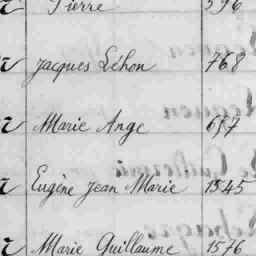 Pierre 596
Jacques Léhon 768
Marie Ange 657
Eugène Jean Marie 1545
Marie Guillaume 1576